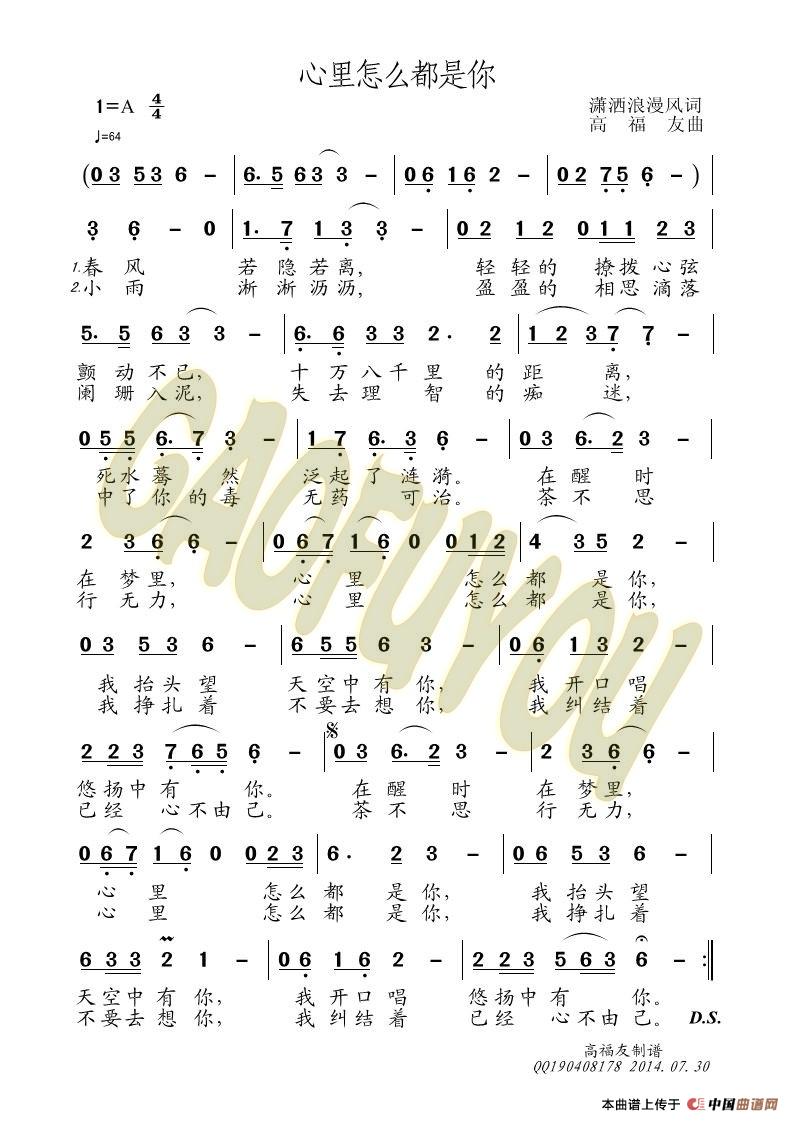 心里怎么都是你
1=A 4/4
潇洒浪漫风词
高福友曲
♩=64
(0 3 5 3 6 - | 6. 5 6 3 3 - | 0 6 1 6 2 - | 0 2 7 5 6 - ) |
3 6 - 0 | 1. 7 1 3 3 - | 0 2 1 2 0 1 1 2 3 |
1.春风 若隐若离, 轻轻的 撩拨心弦
2.小雨 淅淅沥沥, 盈盈的 相思滴落
5. 5 6 3 3 - | 6. 6 3 3 2 . 2 | 1 2 3 7 7 - |
颤动不已, 十万八千里 的距 离,
阑珊入泥, 失去理智 的痴 迷,
0 5 5 6. 7 3 - | 1 7 6. 3 6 - | 0 3 6. 2 3 - |
死水蓦 然 泛起了涟漪。 在醒 时
中了你的毒 无药 可治。 茶不 思
2 3 6 6 - | 0 6 7 1 6 0 0 1 2 | 4 3 5 2 - |
在梦里, 心 里 怎么都 是你,
行无力, 心 里 怎么都 是你,
0 3 5 3 6 - | 6 5 5 6 3 - | 0 6 1 3 2 - |
我抬头望 天空中有你, 我开口唱
我挣扎着 不要去想你, 我纠结着
2 2 3 7 6 5 6 - | 0 3 6. 2 3 - | 2 3 6 6 - |
悠扬中有 你。 在醒 时 在梦里,
已经 心不由己。 茶不 思 行无力,
0 6 7 1 6 0 0 2 3 | 6. 2 3 - | 0 6 5 3 6 - |
心 里 怎么都 是你, 我抬头望
心 里 怎么都 是你, 我挣扎着
6 3 3 2 1 - | 0 6 1 6 2 - | 2 2 3 5 6 3 6 - :||
天空中有你, 我开口唱 悠扬中有 你。
不要去想你, 我纠结着 已经 心不由己。 D.S.
高福友制谱
QQ190408178 2014.07.30
本曲谱上传于 中国曲谱网
GAOFUYOU